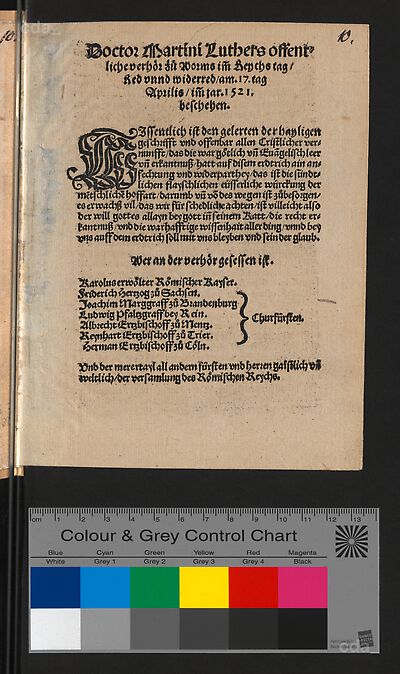 10.
Doctor Martini Luthers offent-
liche verhör zů Worms im̃ Reychs tag/
Red vnnd widerred/am.17.tag
Aprilis/im̃ jar.1521.
beschehen.
Issentlich ist den gelerten der hayligen
geschrifft vnd offenbar allen Cristlicher ver-
nunfft/das die war götlich vñ Euãgelisch leer
vñ erkantnuß/hatt auf disem erdtrich ain an-
fechtung vnd widerparthey/das ist die sündt-
lichen flayschlichen eüsserliche würckung der
mẽschlichẽ hoffart/darumb vñ võ des wegen ist zůbesorgen/
es erwachß vil/das wir für schedliche achten/ist villeicht also
der will gottes allayn bey gott iñ seinem Ratt/die recht er-
kantnuß/vnd die warhafftige wissenhait aller ding/vnnd bey
vns auff dem erdtrich soll mit vns bleyben vnd sein der glaub.
Wer an der verhör gesessen ist.
Karolus erwölter Römischer Kayser.
Friderich Hertzog zů Sachsen.
Joachim Marggraff zů Brandenburg
Ludwig Pfaltzgraff bey Rein.
Albrecht Ertzbischoff zů Mentz.
Reynhart Ertzbischoff zů Trier.
Herman Ertzbischoff zů Cöln.
Churfürsten.
Vnd der merertayl all andern fürsten vnd herren gaistlich vñ
weltlich/der versamlung des Römischen Reychs.
cm 1 2 3 4 5 6 7 8 9 10 11 12 13
Colour & Grey Control Chart
Blue Cyan Green Yellow Red Magenta
White Grey 1 Grey 2 Grey 3 Grey 4 Black